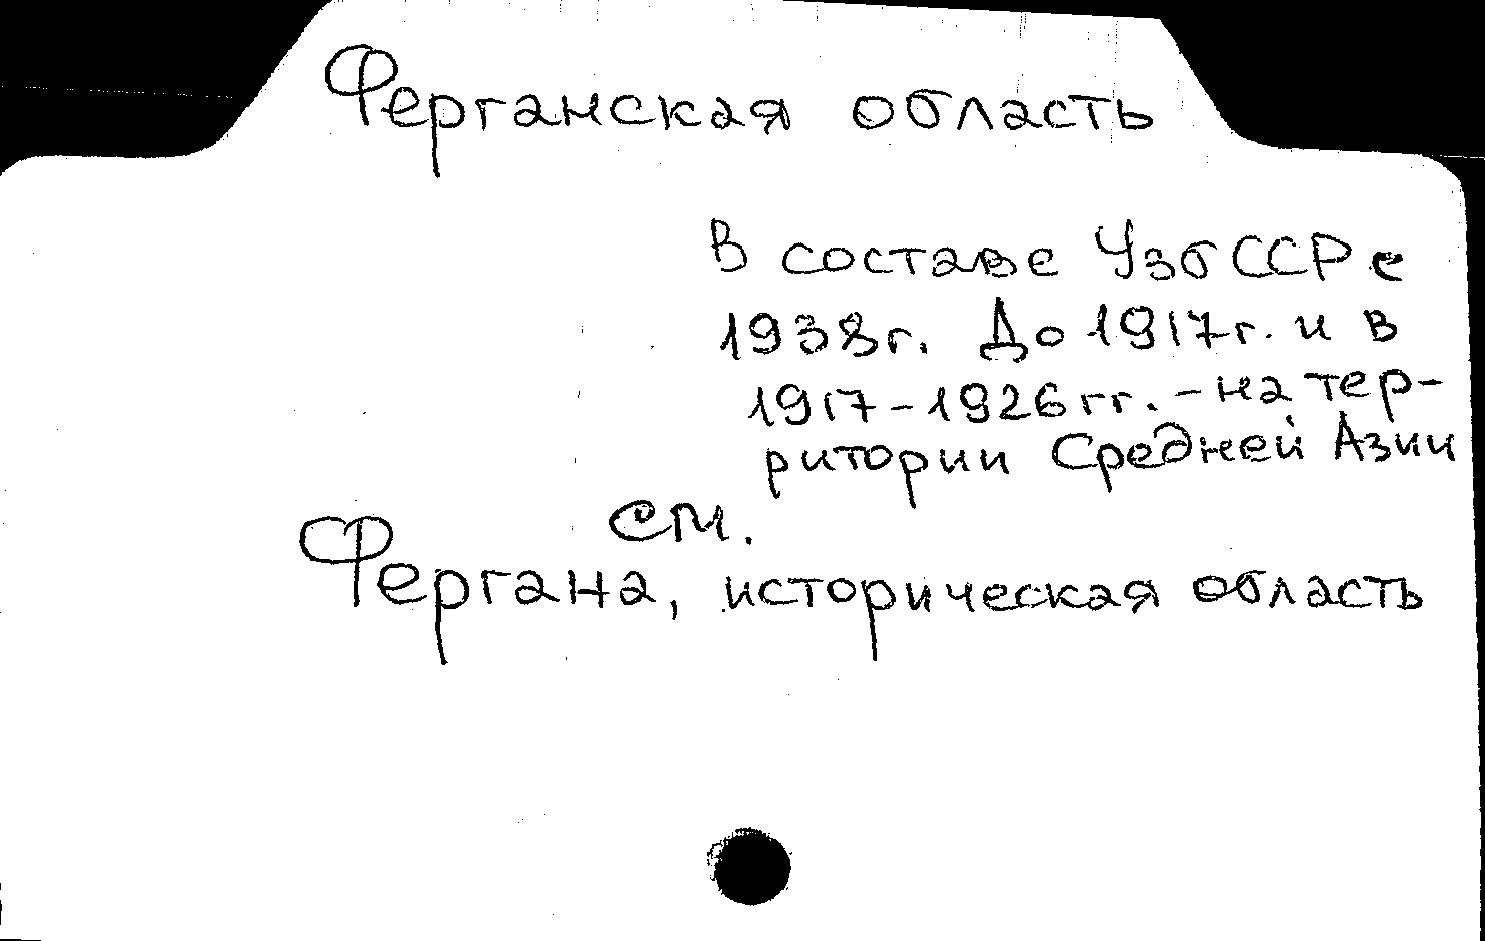 Ферганская область
В составе УзбССР с
1938г. До 1917г. и в
1917-1926гг. - на тер-
ритории Средней Азии
см.
Фергана, историческая область